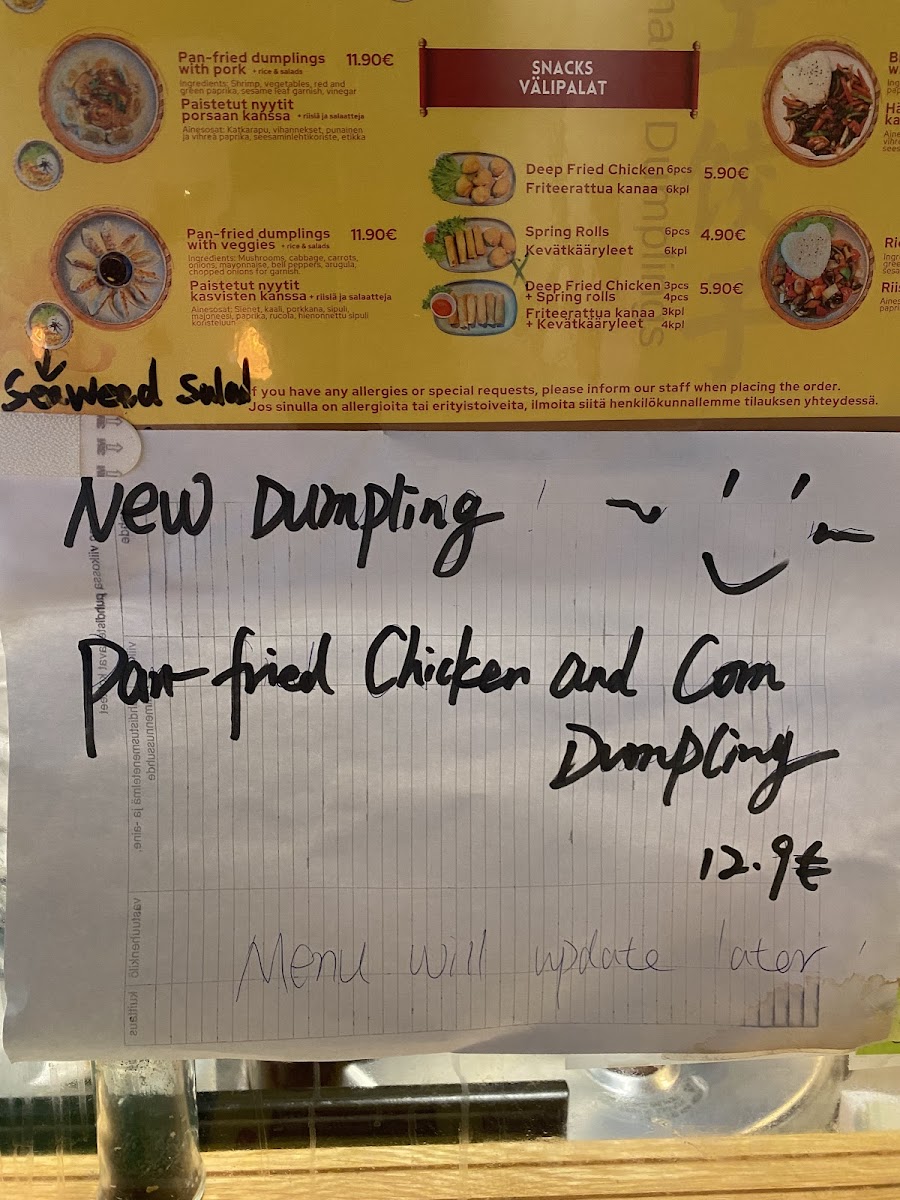 Pan-fried dumplings 11.90€
with pork + rice & salads
Ingredients: Shrimp, vegetables, red and
green paprika, sesame leaf garnish, vinegar
Paistetut nyytit
porsaan kanssa + riisiä ja salaatteja
Ainesosat: Katkarapu, vihannekset, punainen
ja vihreä paprika, seesaminlehtikoriste, etikka
Pan-fried dumplings 11.90€
with veggies + rice & salads
Ingredients: Mushrooms, cabbage, carrots,
onions, mayonnaise, bell peppers, arugula,
chopped onions for garnish.
Paistetut nyytit
kasvisten kanssa + riisiä ja salaatteja
Ainesosat: Sienet, kaali, porkkana, sipuli,
majoneesi, paprika, rucola, hienonnettu sipuli
koristeluun
Seaweed Salad
SNACKS
VÄLIPALAT
Deep Fried Chicken 6pcs 5.90€
Friteerattua kanaa 6kpl
Spring Rolls 6pcs 4.90€
Kevätkääryleet 6kpl
Deep Fried Chicken 3pcs 5.90€
+ Spring rolls 4pcs
Friteerattua kanaa 3kpl
+ Kevätkääryleet 4kpl
Dumplings
f you have any allergies or special requests, please inform our staff when placing the order.
Jos sinulla on allergioita tai erityistoiveita, ilmoita siitä henkilökunnallemme tilauksen yhteydessä.
New Dumpling
Pan-fried Chicken and Corn
Dumpling
12.9€
Menu will update later!
vastuuhenkilö
kuittaus